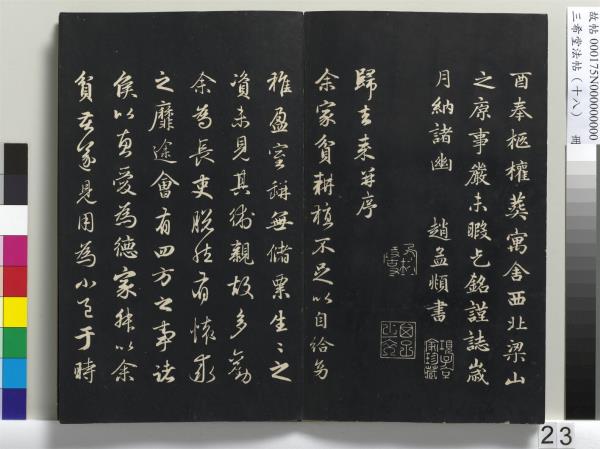 酉奉柩權葬寓舍西北梁山
之原事嚴未暇乞銘謹誌歲
月納諸幽 趙孟頫書
歸去來并序
余家貧耕植不足以自給幼
稚盈室缾無儲粟生生之
資未見其術親故多勸
余為長吏脫然有懷求
之靡途會有四方之事諸
侯以惠愛為德家叔以余
貧苦遂見用為小邑于時
項子京
家珍藏
故帖 000175N000000000
三希堂法帖（十八）
23